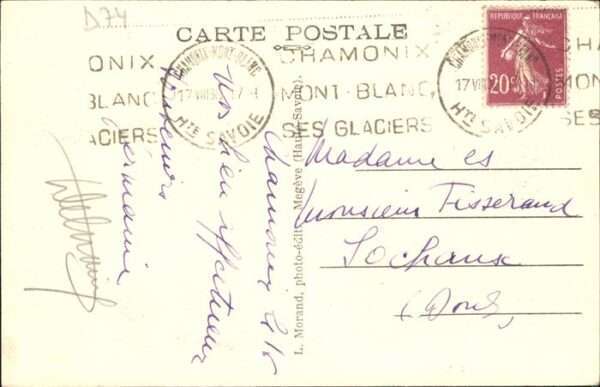 D.74
CARTE POSTALE
ONIX
BLANC
ACIERS
CHAMONIX-MONT-BLANC
17 VIII
HTE SAVOIE
CHAMONIX
MONT-BLANC
SES GLACIERS
CHAMONIX-MONT-BLANC
17 VIII
HTE SAVOIE
CHA
MON
SES
REPUBLIQUE FRANÇAISE
20c
POSTES
Chamonix le 16
Vos bien affectueux
souvenirs
Germaine
L. Morand, photo-édit., Megève (Haute-Savoie).
Madame et
monsieur Tisserand
Sochaux
(Doubs)